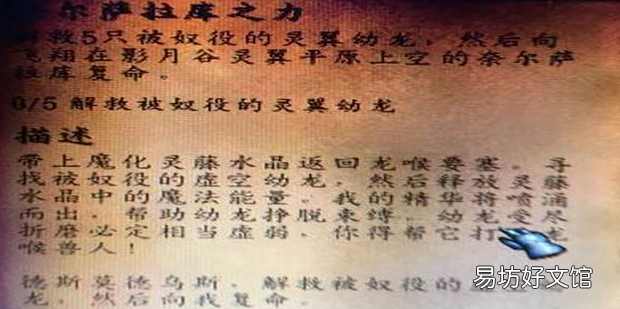 尔萨拉库之力
救5只被奴役的灵翼幼龙，然后向
飞翔在影月谷灵翼平原上空的奈尔萨
拉库复命。
0/5 解救被奴役的灵翼幼龙
描述
带上魔化灵藤水晶返回龙喉要塞。寻
找被奴役的虚空幼龙，然后释放灵藤
水晶中的魔法能量。我的精华将喷涌
而出，帮助幼龙挣脱束缚。幼龙受尽
折磨必定相当虚弱，你得帮它打 龙
喉兽人！
德斯莫德乌斯，解救被奴役的
龙，然后向我复命。
易坊好文馆